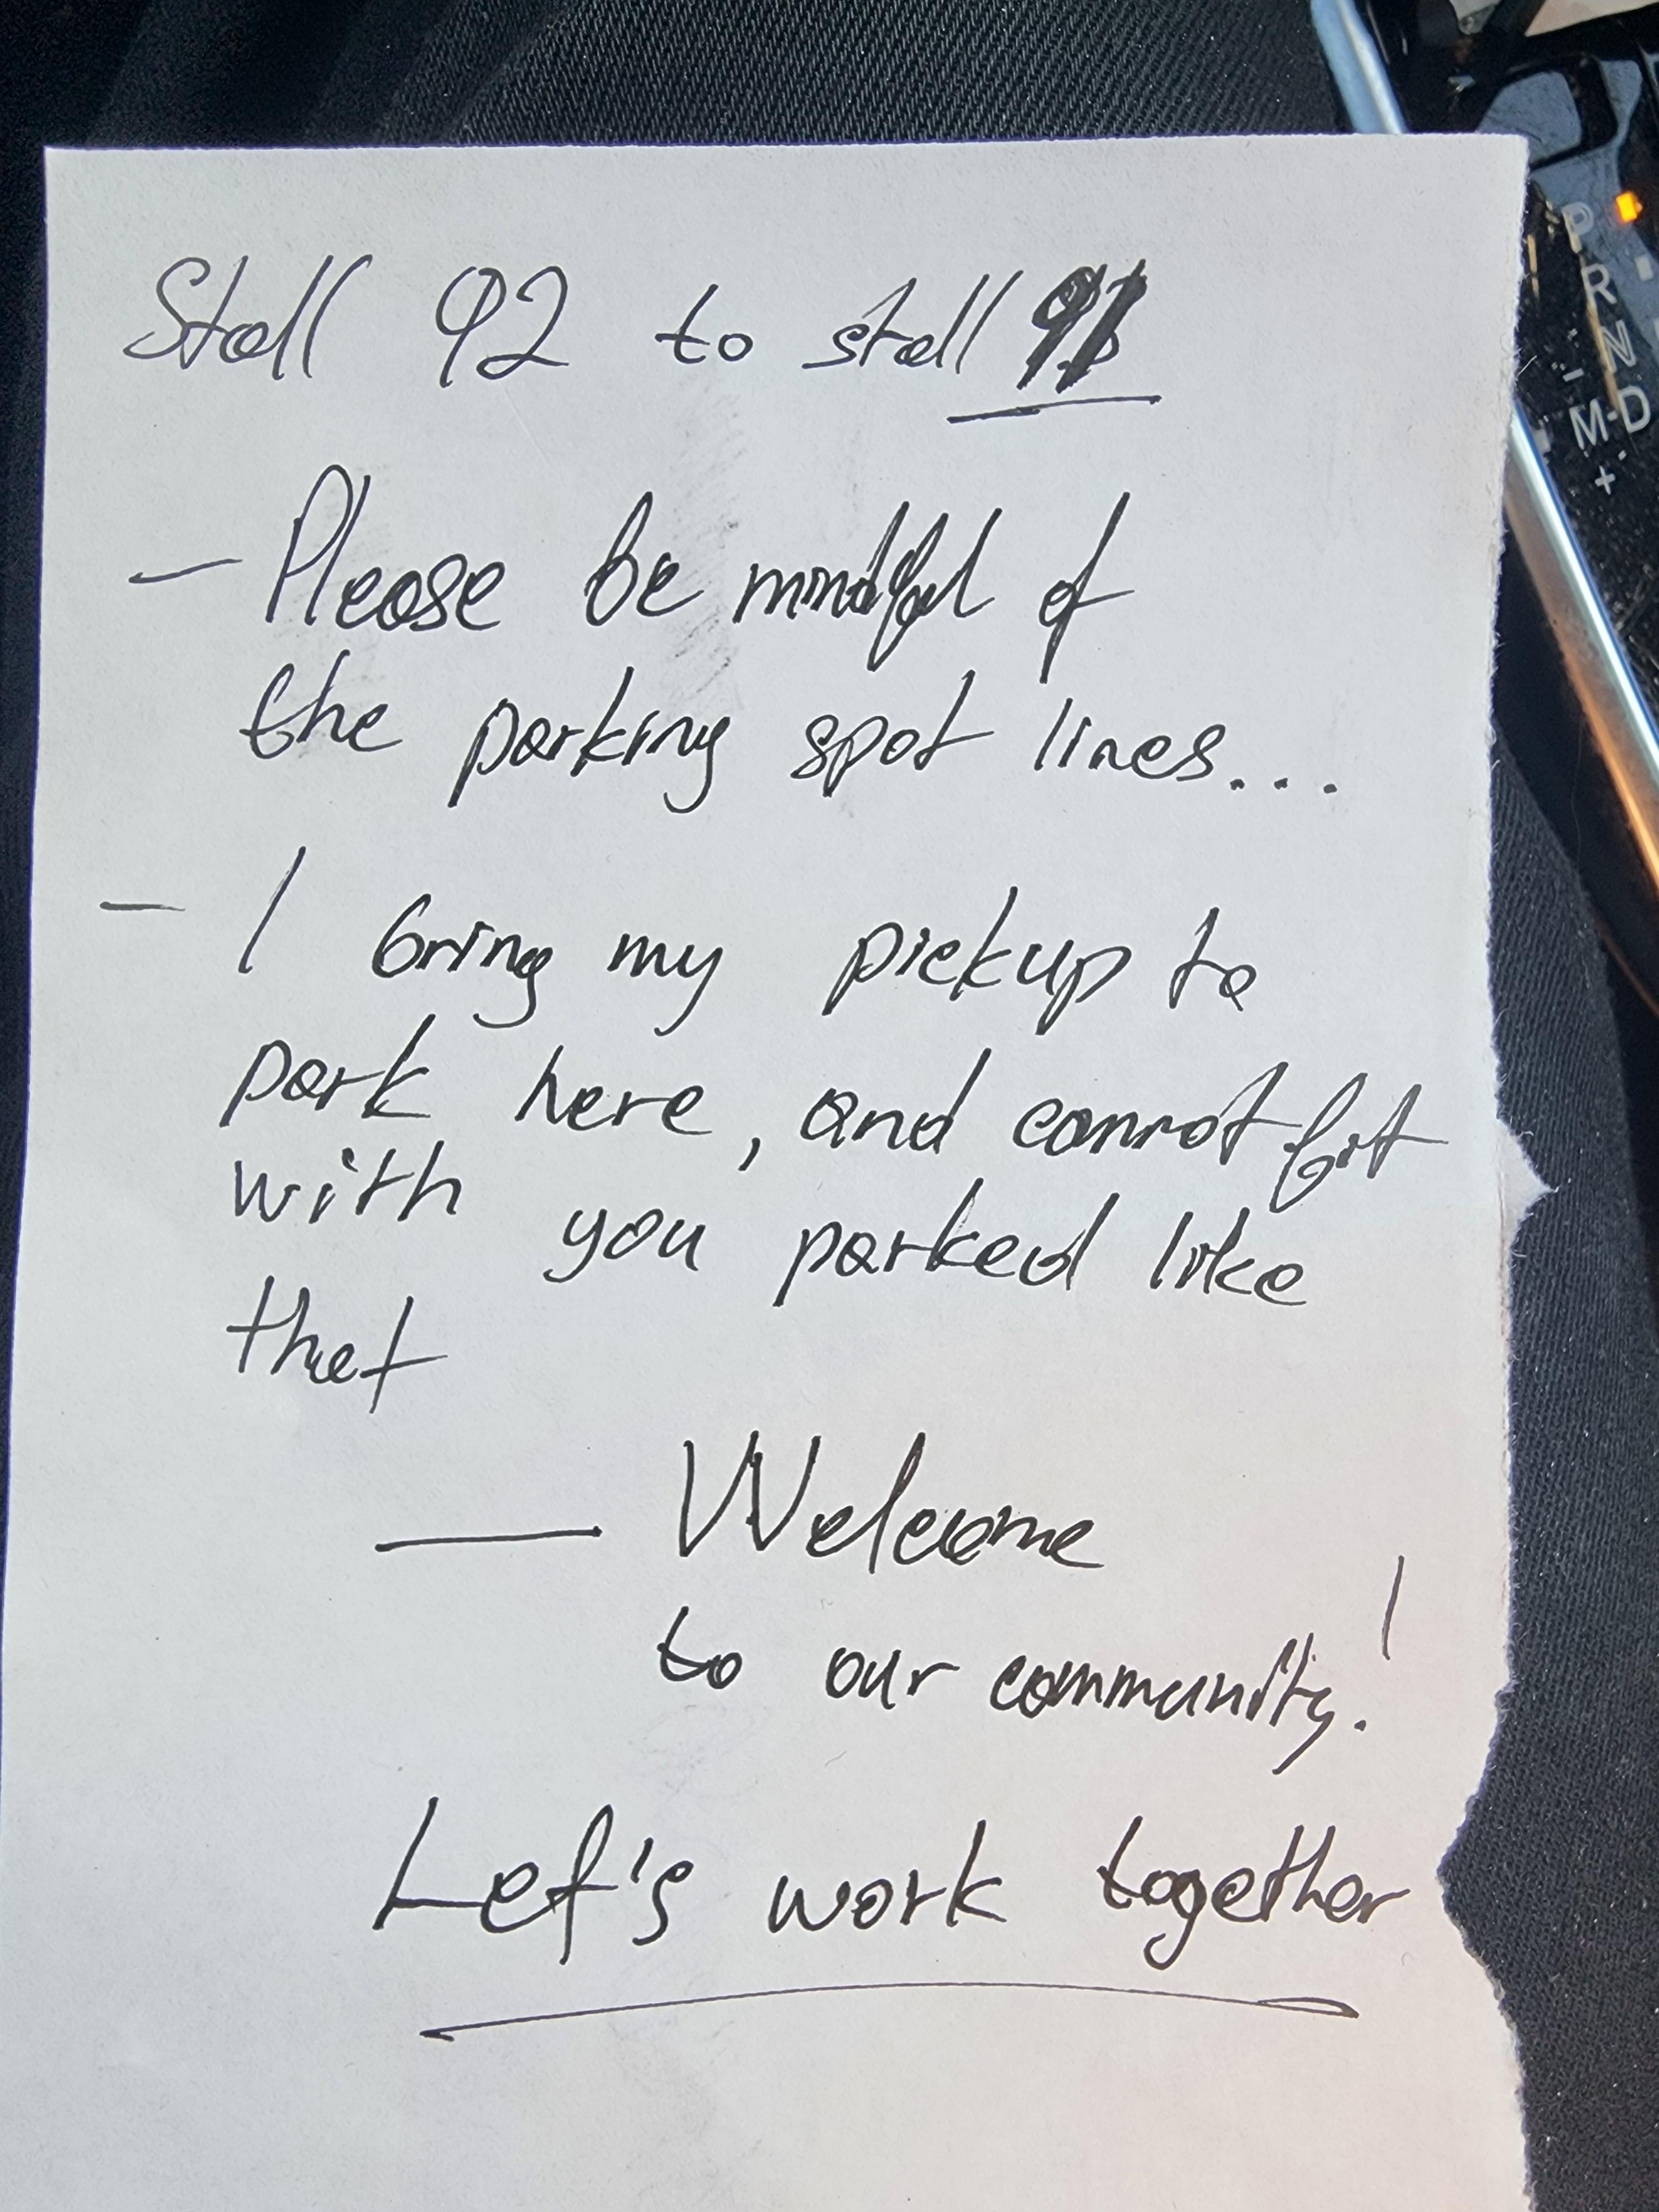 Stall 92 to stall 91
- Please be mindful of
the parking spot lines...
- I bring my pickup to
park here, and cannot fit
with you parked like
that
— Welcome
to our community!
Let's work together
P
R
N
- M-D
+